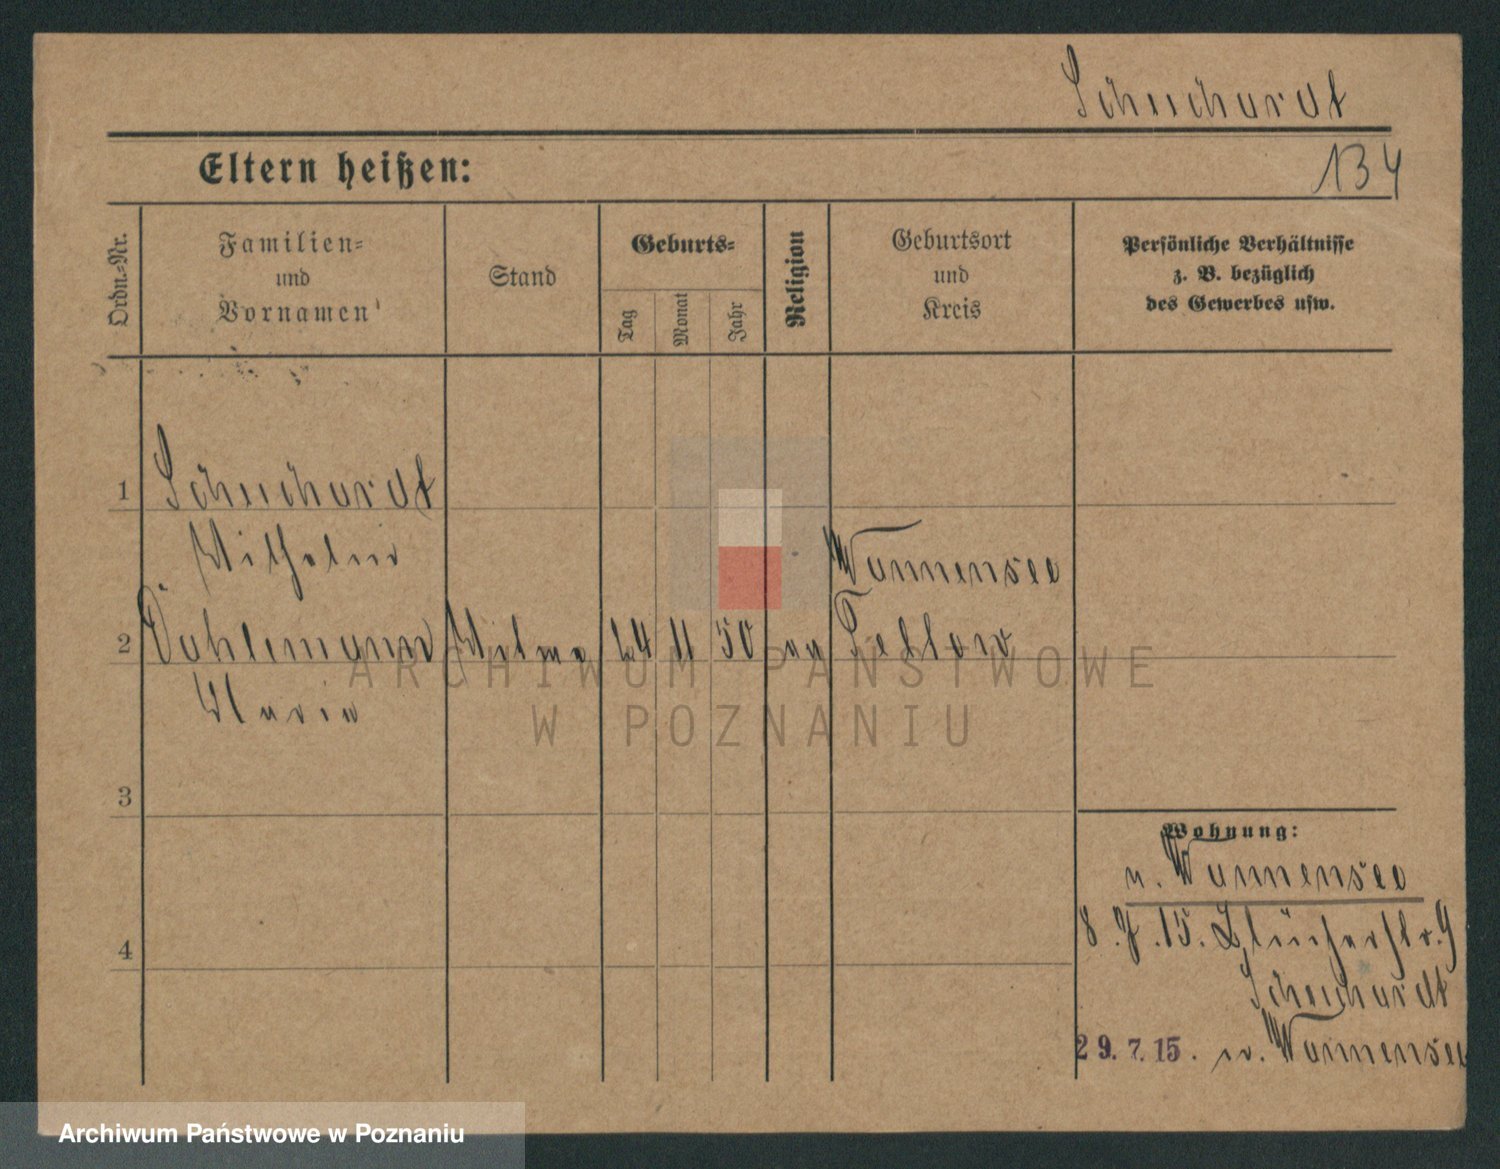 Schuchardt
Eltern heißen:
134
Ordn.-Nr.
Familien-
und
Vornamen
Stand
Geburts-
Tag
Monat
Jahr
Religion
Geburtsort
und
Kreis
Persönliche Verhältnisse
z. B. bezüglich
des Gewerbes usw.
1
Schuchardt
Wilhelm
Wannensee
2
Dahlemann
Witwe
24
11
50
ev
Teltow
Maria
ARCHIWUM PAŃSTWOWE
W POZNANIU
3
Wohnung:
n. Wannensee
8.7.15. Blücherstr. 9
4
Schuchardt
29.7.15. n. Wannensee
Archiwum Państwowe w Poznaniu